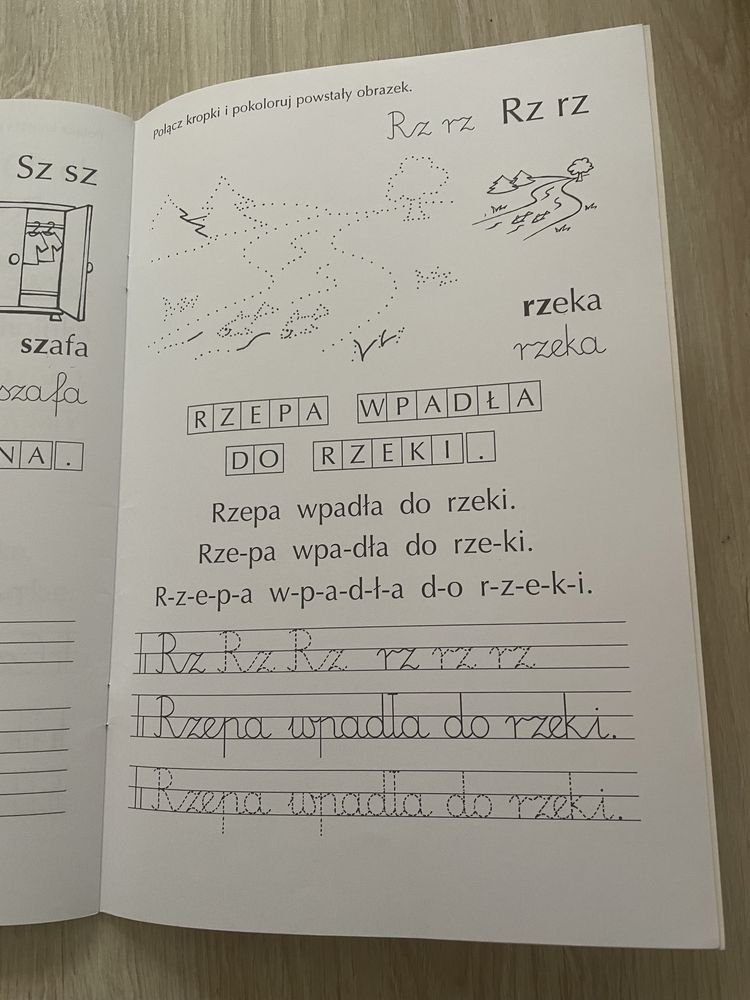 Sz sz
szafa
szafa
NA.
Połącz kropki i pokoloruj powstały obrazek.
Rz rz Rz rz
rzeka
rzeka
RZEPA WPADŁA
DO RZEKI.
Rzepa wpadła do rzeki.
Rze-pa wpa-dła do rze-ki.
R-z-e-p-a w-p-a-d-ł-a d-o r-z-e-k-i.
Rz Rz Rz rz rz rz
Rzepa wpadła do rzeki.
Rzepa wpadła do rzeki.